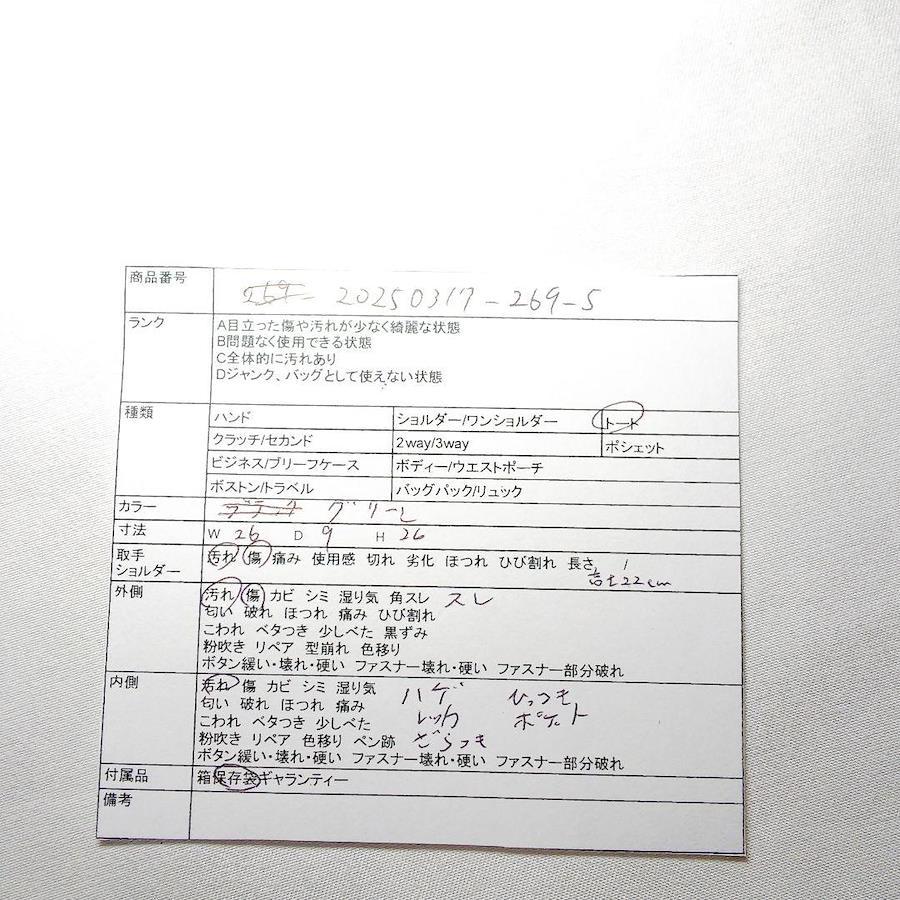 商品番号 20250317-269-5
ランク
A目立った傷や汚れが少なく綺麗な状態
B問題なく使用できる状態
C全体的に汚れあり
Dジャンク、バッグとして使えない状態
種類
ハンド ショルダー/ワンショルダー トート
クラッチ/セカンド 2way/3way ポシェット
ビジネス/ブリーフケース ボディー/ウエストポーチ
ボストン/トラベル バッグパック/リュック
カラー ブラック グリーン
寸法 W 26 D 9 H 26
取手 汚れ 傷 痛み 使用感 切れ 劣化 ほつれ ひび割れ 長さ
ショルダー 22cm
外側 汚れ 傷 カビ シミ 湿り気 角スレ スレ
匂い 破れ ほつれ 痛み ひび割れ
こわれ ベタつき 少しべた 黒ずみ
粉吹き リペア 型崩れ 色移り
ボタン緩い・壊れ・硬い ファスナー壊れ・硬い ファスナー部分破れ
内側 汚れ 傷 カビ シミ 湿り気 ハゲ ひっつき
匂い 破れ ほつれ 痛み
こわれ ベタつき 少しべた ポケット
粉吹き リペア 色移り ペン跡 ざらつき
ボタン緩い・壊れ・硬い ファスナー壊れ・硬い ファスナー部分破れ
付属品 箱保存袋ギャランティー
備考